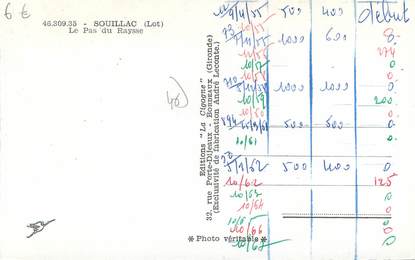 6 €
46.309.35 - SOUILLAC (Lot)
Le Pas du Raysse
Editions "La Cigogne"
32, rue Porte-Dijeaux - Bordeaux (Gironde)
(Exclusivité de fabrication André Leconte.)
* Photo véritable *
500 400 Début
1000 600 8
274
10/57 0
10/58 0
1000 1000 0
10/59 200
10/60 0
500 500 0
10/61 0
500 400 0
10/62 125
10/63 0
10/64 0
0
10/66 0
10/67 0